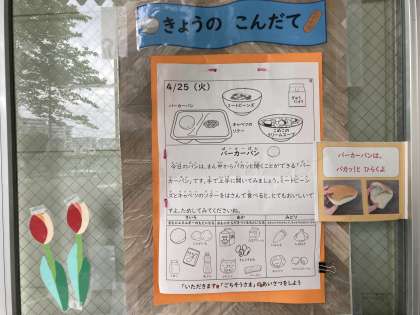 きょうの こんだて
4/25（火）
バーガーパン
ミートビーンズ
キャベツの
ソテー
こめこの
クリームスープ
バーガーパン
今日のパンは、まん中からパカッと開くことができる「バー
ガーパン」です。手で上手に開いてみましょう。ミートビーン
ズとキャベツのソテーをはさんで食べると、とてもおいしいで
すよ。ためしてみてくださいね。
きいろ
あか
みどり
「いただきます」「ごちそうさま」のあいさつをしよう
バーガーパンは、
パカッ!と ひらくよ